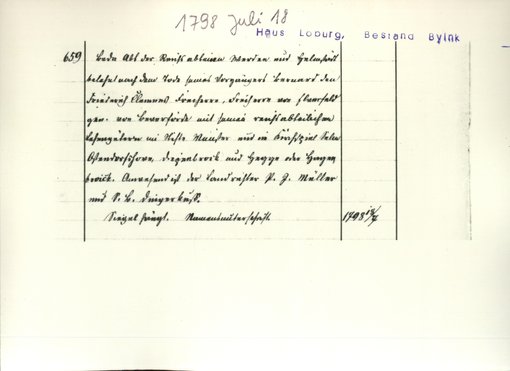 1798 Juli 18
Haus Loburg, Bestand Byink
659
Beda Abt der Reichsabteien Werden und Helmstedt
belehnt nach dem Tode seines Vorgängers Bernard den
Friederich Clemens Freiherrn, Freiherrn von Elverfeld
gen. von Beverförde mit seinen reichsabteilichen
Lehengütern im Stifte Münster und im Kirchspiel
Ostendorf Degenbrock und Hegge oder Hagen
brock. Anwesend ist der Landrichter P. J. Müller
und S. L. Dingerkus.
Siegel hängt. Namensunterschrift.
1798 18/7